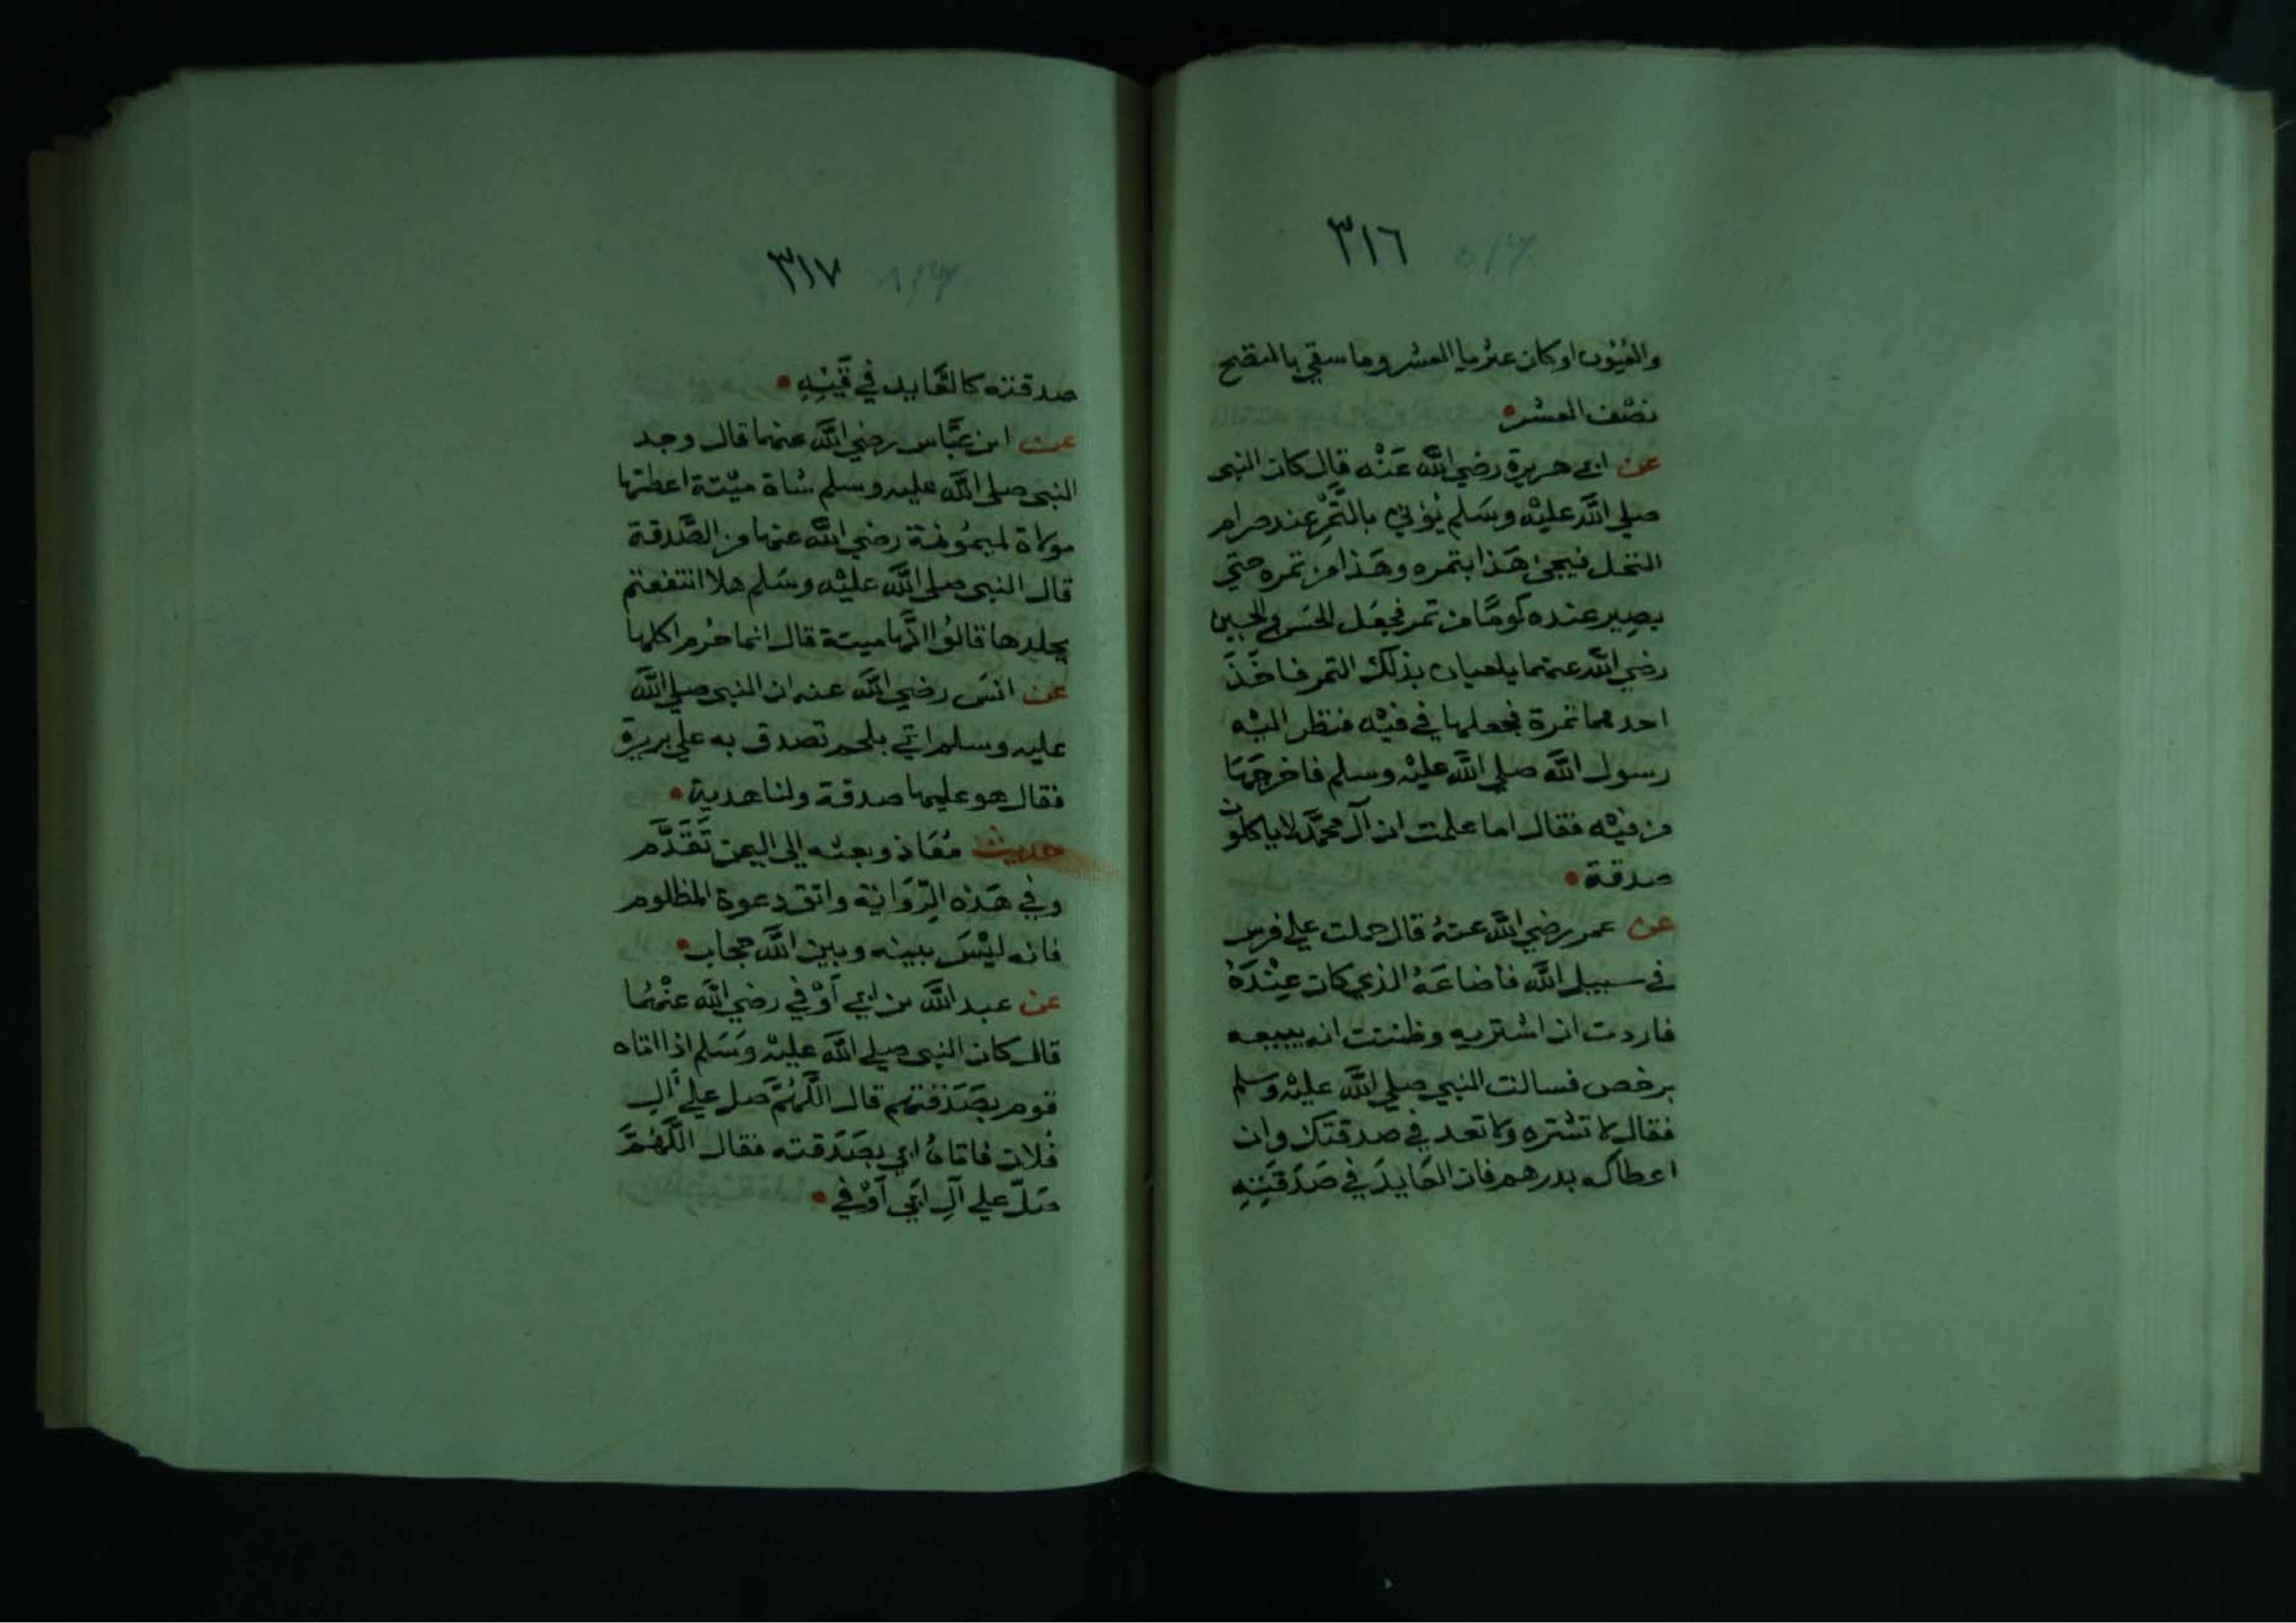 ٣١٦
والعُيُون او كان عثريا العشر وما سقي بالنضح
نصْف العشر
عن ابي هريرة رضي الله عَنْه قال كان النبي
صلي الله عليْه وسَلم يُؤتي بالتَّمْرِ عند صرام
النخل فيجئ هَذا بتمره وهَذا من تمره حتي
يصِير عنده كَومًا من تمر فجعَل الحسَن والحسين
رضي الله عنهما يلعبان بذلك التمر فاخَذَ
احدهما تمرة فجعلها في فيْه فنظر اليْه
رسول الله صلي الله عليْه وسلم فاخرجَهَا
من فيْه فقال اما علمت ان آل محمَّد لا ياكلون
صدقة
عن عمر رضي الله عنهُ قال حملت علي فرس
في سبيل الله فأضاعَهُ الذي كان عِنْدَهُ
فاردت ان اشتريه وظننت انه يبيعه
برخص فسالت النبي صلي الله عليْه وسلم
فقال لا تشتره ولا تعد في صدقتك وان
اعطاكه بدرهم فان العَايدَ في صَدَقَتِهِ
٣١٧
صدقته كالعَّايد في قَيْئِهِ
عن ابن عبَّاس رضي الله عنهما قال وجد
النبي صلي الله عليه وسلم شاة ميّتة اعطتها
مولاة لميمُونة رضي الله عنها من الصَّدقة
قال النبي صلي الله عليْه وسَلم هلا انتفعتم
بجلدها قالوُا انَّها ميتة قال انما حُرم اكلها
عن انسَ رضي الله عنه ان النبي صلي الله
عليه وسلم اتي بلحم تصدق به علي بريرة
فقال هو عليها صدقة ولنا هدية
حديث مُعَاذ وبعثه الي اليمن تَقَدَّم
وفي هَذه الرِّوَاية واتق دعوة المظلوم
فانه ليْسَ بينه وبين الله حجاب
عن عبد الله بن ابي أوْفي رضي الله عنْهُما
قال كان النبي صلي الله عليْه وَسَلم اذا اتاه
قوم بصَدَقتهم قال اللَّهُمَّ صل علي آلِ
فُلان فاتاهُ ابي بصَدَقته فقال اللَّهُمَّ
صَلّ علي آلِ ابَي أوْفي